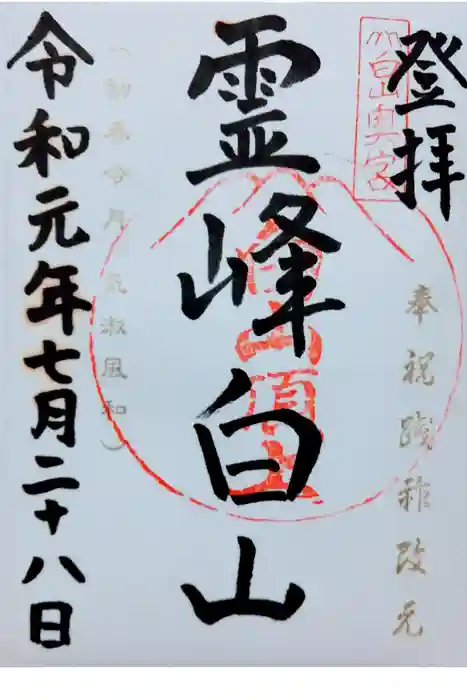 登拝
白山奥宮
奉祝践祚改元
霊峰白山
白山頂上
(初春令月、気淑風和)
令和元年七月二十八日